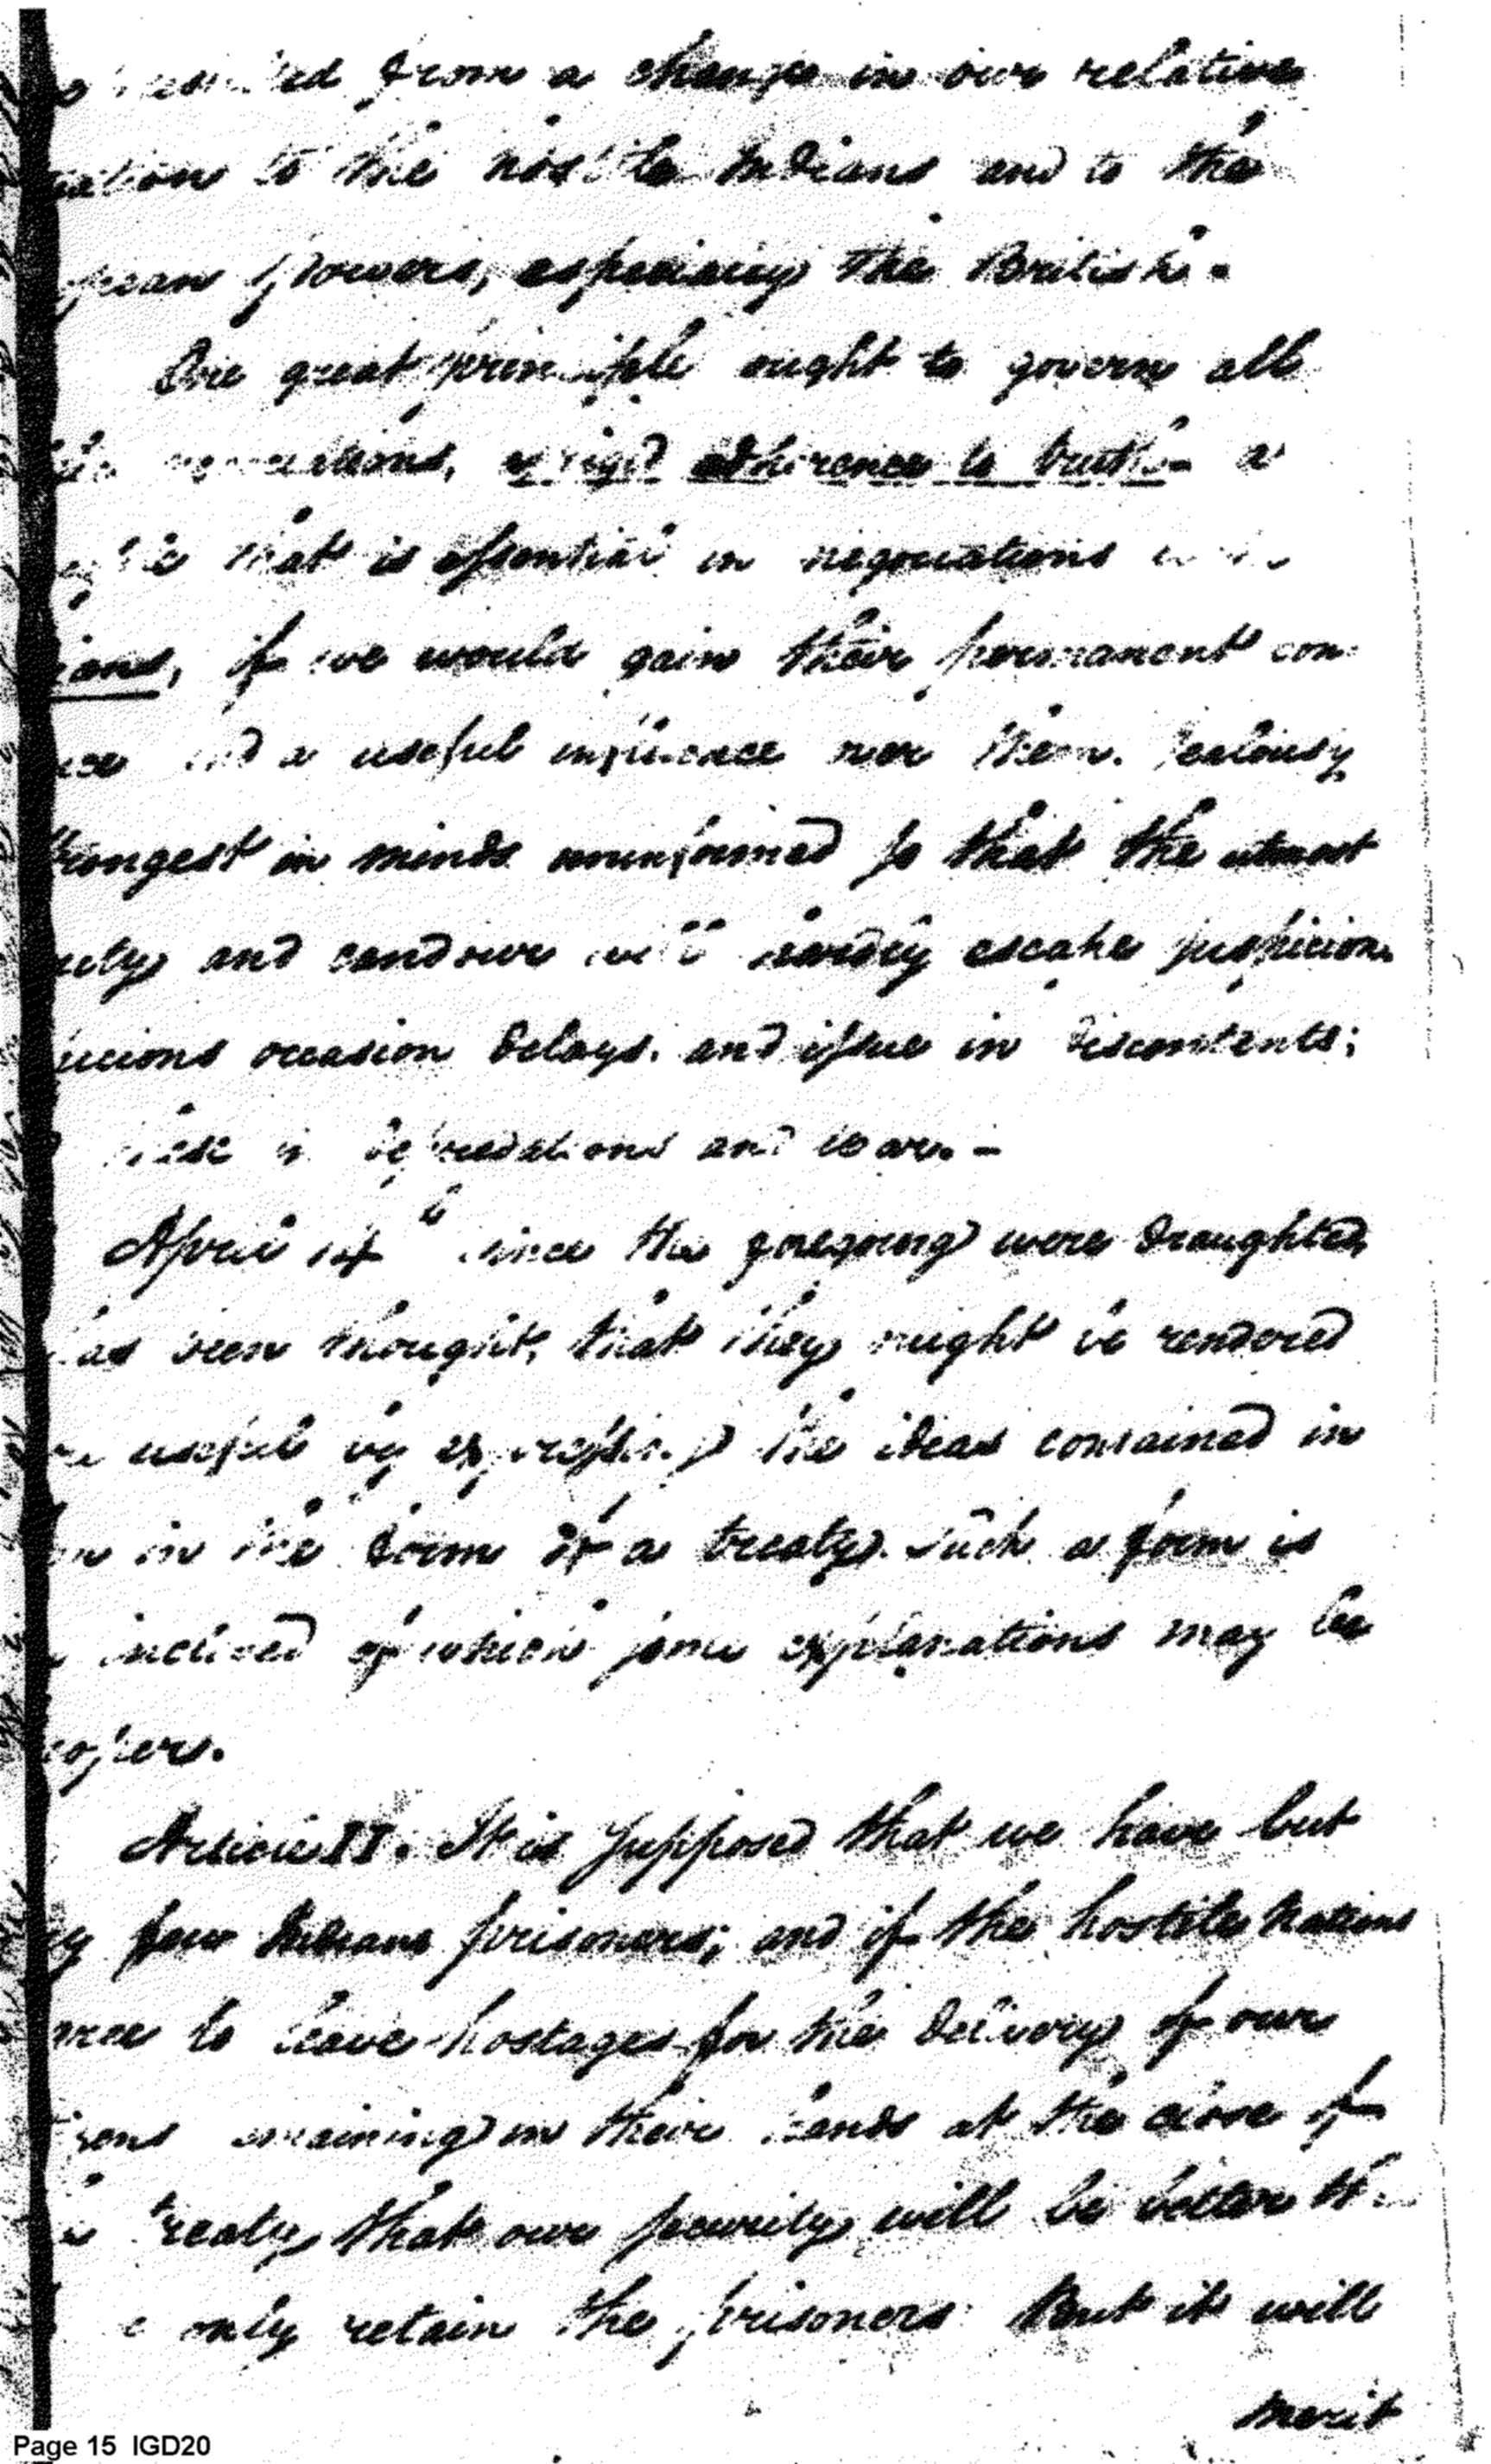 from a change in our relative
to the hostile Indians and to the
powers, especially the British.
One great principle ought to govern all
a rigid adherence to truth - a
that is essential in negociations
if we would gain their permanent con-
and a useful influence over them. Jealousy
in minds uninformed so that the utmost
and candour will hardly escape suspicion.
occasion delays, and issue in discontents;
these in depredations and war. -
April 14th since the foregoing were draughted
been thought, that they might be rendered
useful by expressing the ideas contained in
in the form of a treaty. Such a form is
inclosed of which some explanations may be
Article II. It is supposed that we have but
few Indians prisoners; and if the hostile Nations
to leave hostages for the delivery of our
remaining in their hands at the close of
treaty, that our security will be better
only retain the prisoners. But it will
merit
Page 15 IGD20